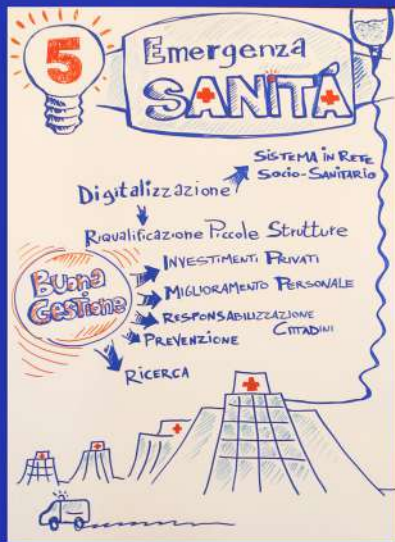 5
Emergenza
SANITÁ
SISTEMA IN RETE
SOCIO-SANITARIO
Digitalizzazione
Riqualificazione Piccole Strutture
Buona
Gestione
INVESTIMENTI PRIVATI
MIGLIORAMENTO PERSONALE
RESPONSABILIZZAZIONE
CITTADINI
PREVENZIONE
RICERCA